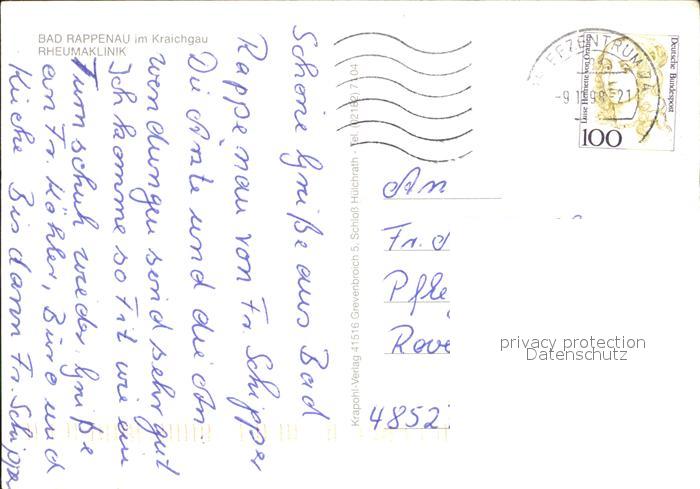 BAD RAPPENAU im Kraichgau
RHEUMAKLINIK
Schöne Grüße aus Bad
Rappenau von Fr. Schipper
Die Ärzte und die An
wendungen sind sehr gut
Ich komme so fit wie ein
Turnschuh wieder. Grüße
an Fr. Köhler, Büro und
Küche Bis dann Fr. Schippe
Krapohl-Verlag 41516 Grevenbroich 5, Schloß Hülchrath · Tel. (02182) 7104
BRIEFZENTRUM 74
-9.11.98-21
Deutsche Bundespost
Luise Henriette von Oranien
100
An
Fr. d
Pfle
Rove
4852
privacy protection
Datenschutz